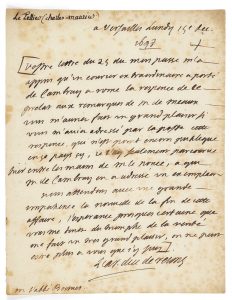 Le Tellier (Charles-Maurice)
a Versailles Lundy 15e Dec.
1698
Vostre lettre du 25 du mois passé m'a
appris qu'un courier extraordinaire a porté
de Cambray a rome la reponse de ce
prelat aux remarques de M. de Meaux
vous m'aurez fait un grand plaisir si
vous m'avez adressé par la poste cette
reponse, que n'est point encore publique
en ce pays cy, il a seulement parcouru
hier entre les mains de M. le nonce, a qui
M. de Cambray en a adressé un exemplaire
nous attendons avec une grande
impatience la nouvelle de la fin de cette
affaire, l'esperance presque certaine que
vous me donez du triomphe de la verité
me fait un tres grand plaisir, on ne peut
estre plus a vous que j'y suis
L'ar. duc de reims
M. l'abbé Bossuet